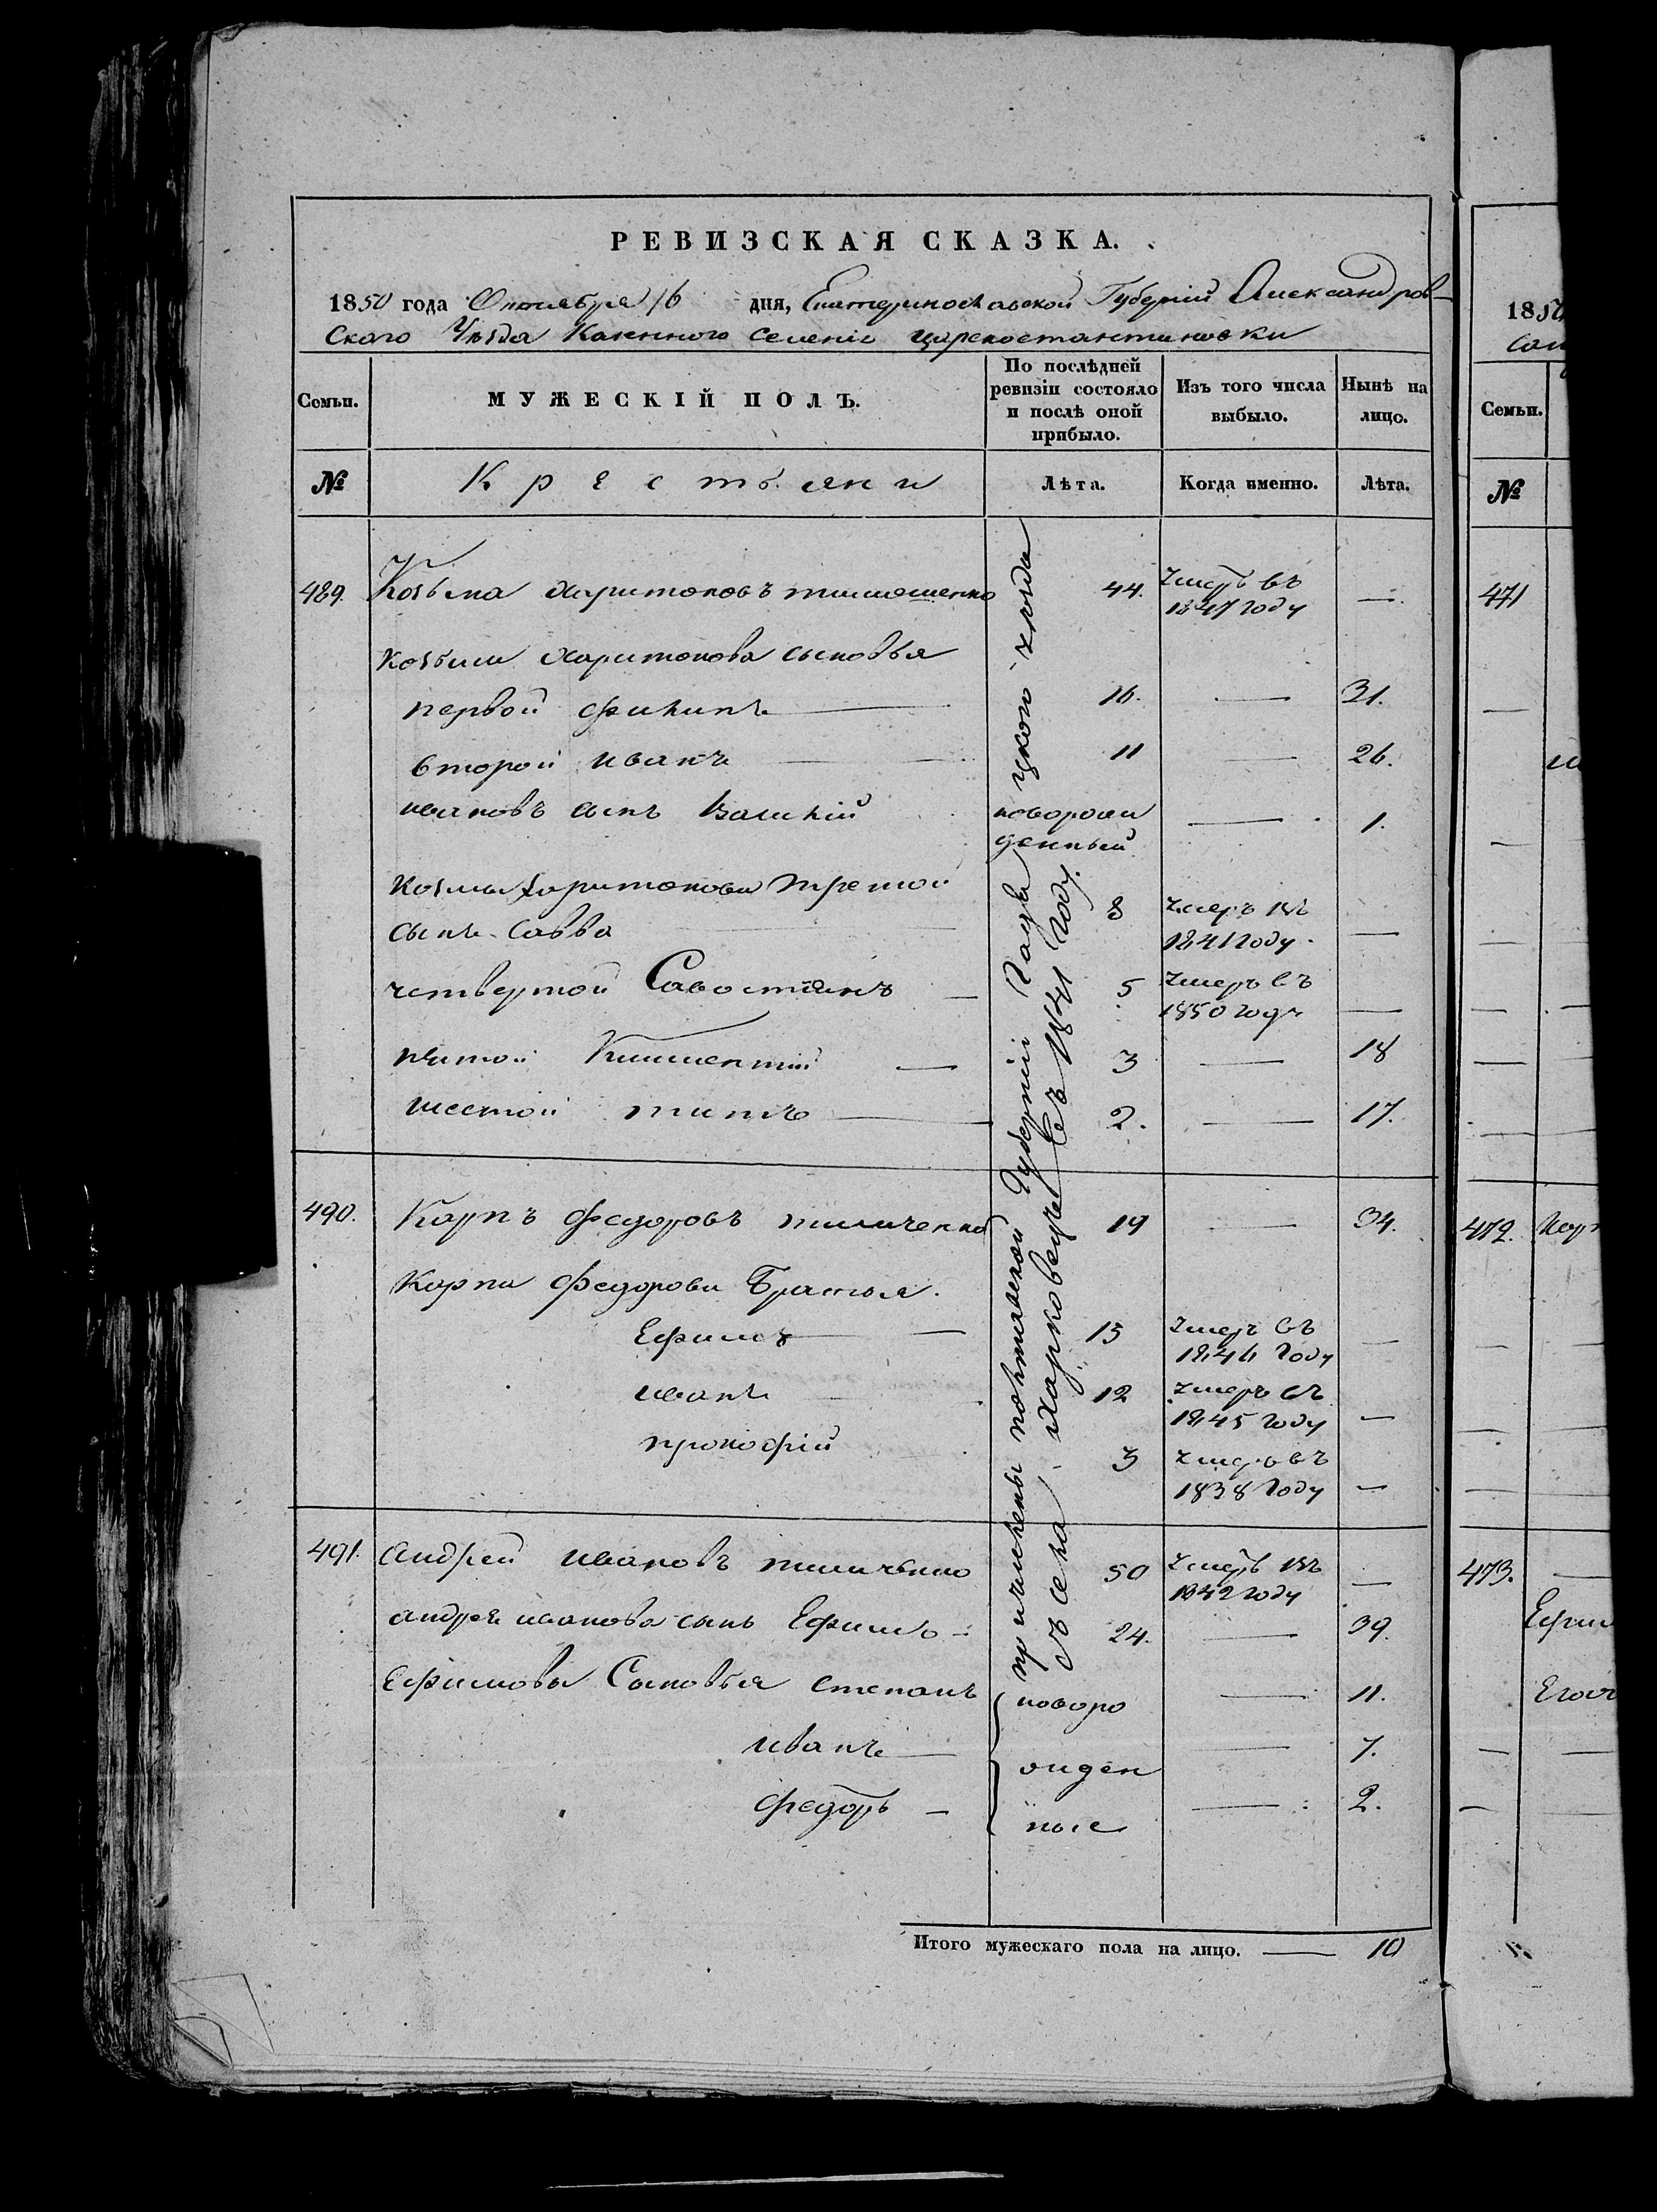 РЕВИЗСКАЯ СКАЗКА.
1850 года Октября 16 дня, Екатеринославской Губерніи Александров-
ского Уѣзда Казенного селенія Цареконстантиновки
Семьи. МУЖЕСКІЙ ПОЛЪ. По послѣдней ревизіи состояло и послѣ оной прибыло. Изъ того числа выбыло. Нынѣ на лицо.
№ Крестьяни Лѣта. Когда именно. Лѣта.
489. Козьма Харитоновъ тимошенко 44. умеръ въ 1847 году —
Козьмы Харитонова сыновья
первой филипъ 16. — 31.
второй иванъ 11 — 26.
ивановъ сынъ новорож денный — 1.
Козмы Харитонова третой
сынъ Савва 8 умеръ въ 1841 году —
четвертой Савостіянъ 5 умеръ въ 1850 году —
пятой 3 — 18
шестой титъ 2. — 17.
490. Карпъ федоровъ 19 — 34.
Карпа федорова Братья.
Ефимъ 13 умеръ въ 1846 году —
иванъ 12 умеръ въ 1845 году —
прокофій 3 умеръ въ 1838 году —
491. Андрей ивановъ 50 умеръ въ 1842 году —
андрея иванова сынъ Ефимъ 24. — 39.
Ефимовы Сыновья степанъ новоро — 11.
иванъ жден — 7.
федоръ ные — 2.
причислены полтавской Губерніи уезда
съ села въ 1841 году.
Итого мужескаго пола на лицо. — 10
1850
Семьи.
№
471
472.
473.